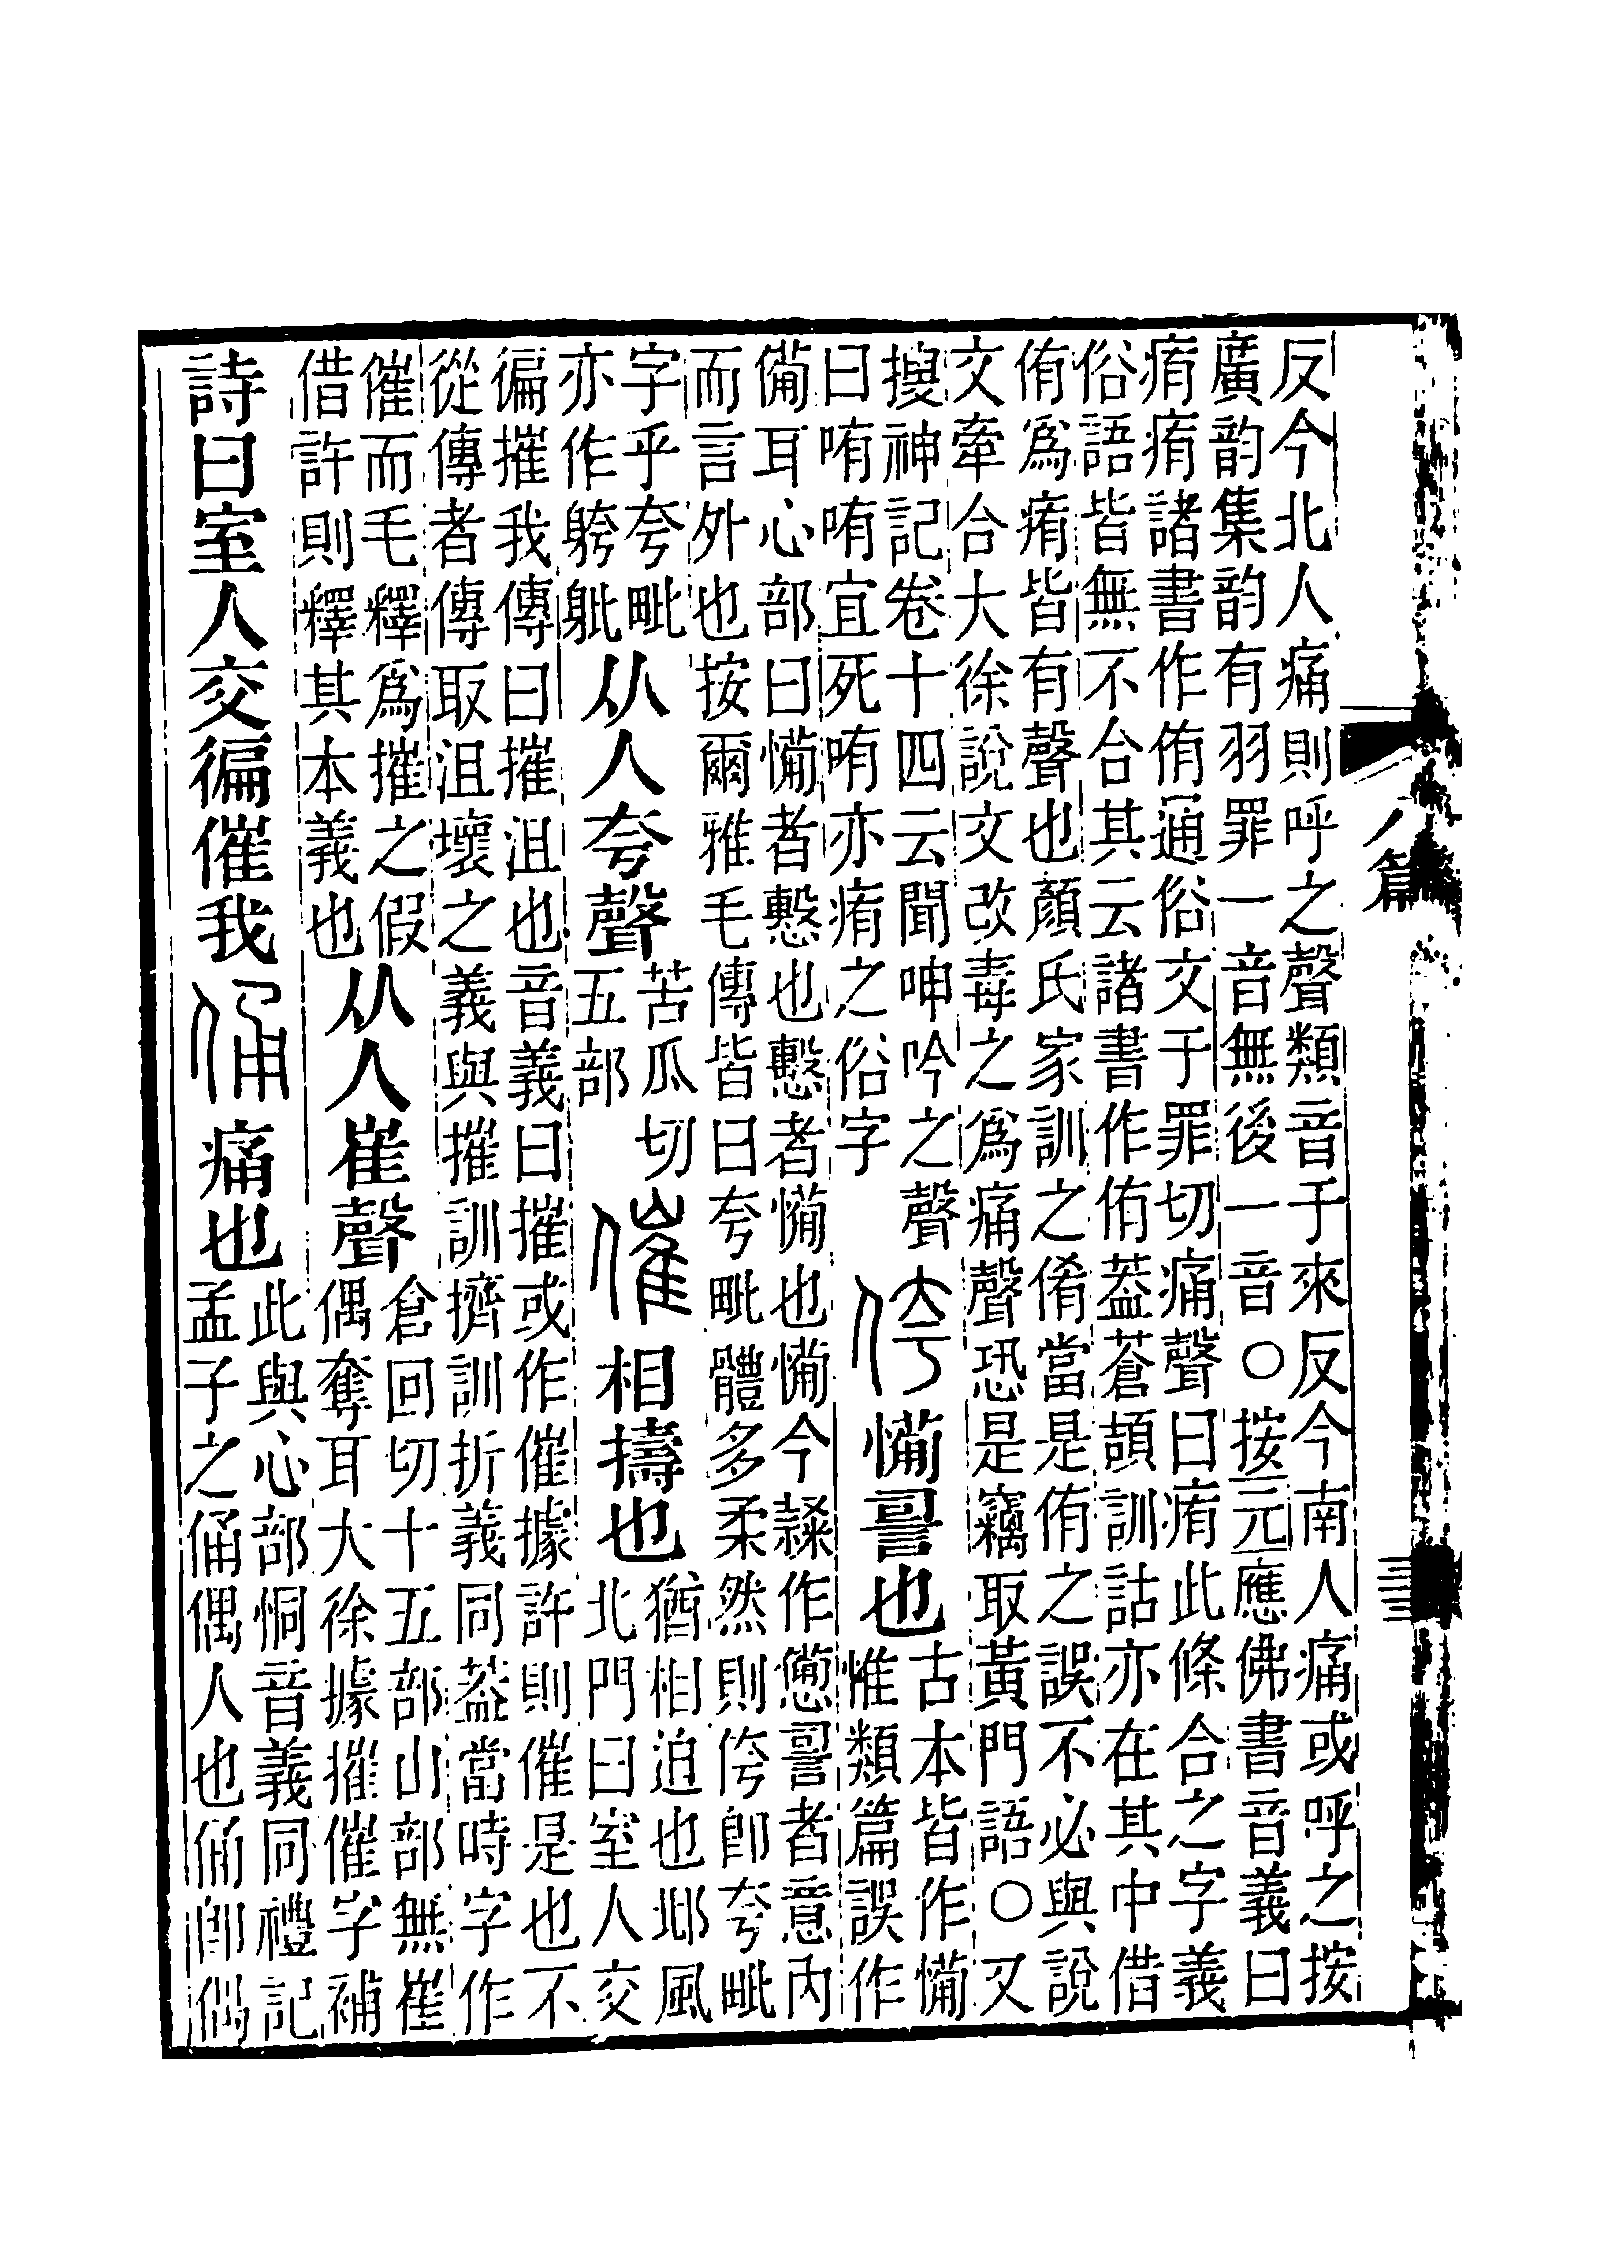 八篇
反今北人痛則呼之聲類音于來反今南人痛或呼之按
廣韵集韵有羽罪一音無後一音○按元應佛書音義曰
痏痏諸書作侑通俗文于罪切痛聲曰痏此條合之字義
俗語皆無不合其云諸書作侑葢蒼頡訓詁亦在其中借
侑爲痏皆有聲也顏氏家訓之倄當是侑之誤不必與說
文牽合大徐說文改毒之爲痛聲恐是竊取黃門語○又
搜神記卷十四云聞呻吟之聲
曰哊哊宜死哊亦痏之俗字
侉㥶䛐也
古本皆作㥶
惟類篇誤作
備耳心部曰㥶者也者㥶也㥶今隸作憊䛐者意內
而言外也按爾雅毛傳皆曰夸毗體多柔然則侉卽夸毗
字乎夸毗
亦作
从人夸聲
苦瓜切
五部
催相擣也
猶相迫也邶風
北門曰室人交
徧摧我傳曰摧沮也音義曰摧或作催據許則催是也不
從傳者傳取沮壞之義與摧訓擠訓折義同葢當時字作
催而毛釋爲摧之假
借許則釋其本義也
从人崔聲
倉回切十五部山部無崔
偶奪耳大徐據摧催字補
詩曰室人交徧催我俑痛也
此與心部恫音義同禮記
孟子之俑偶人也俑卽偶